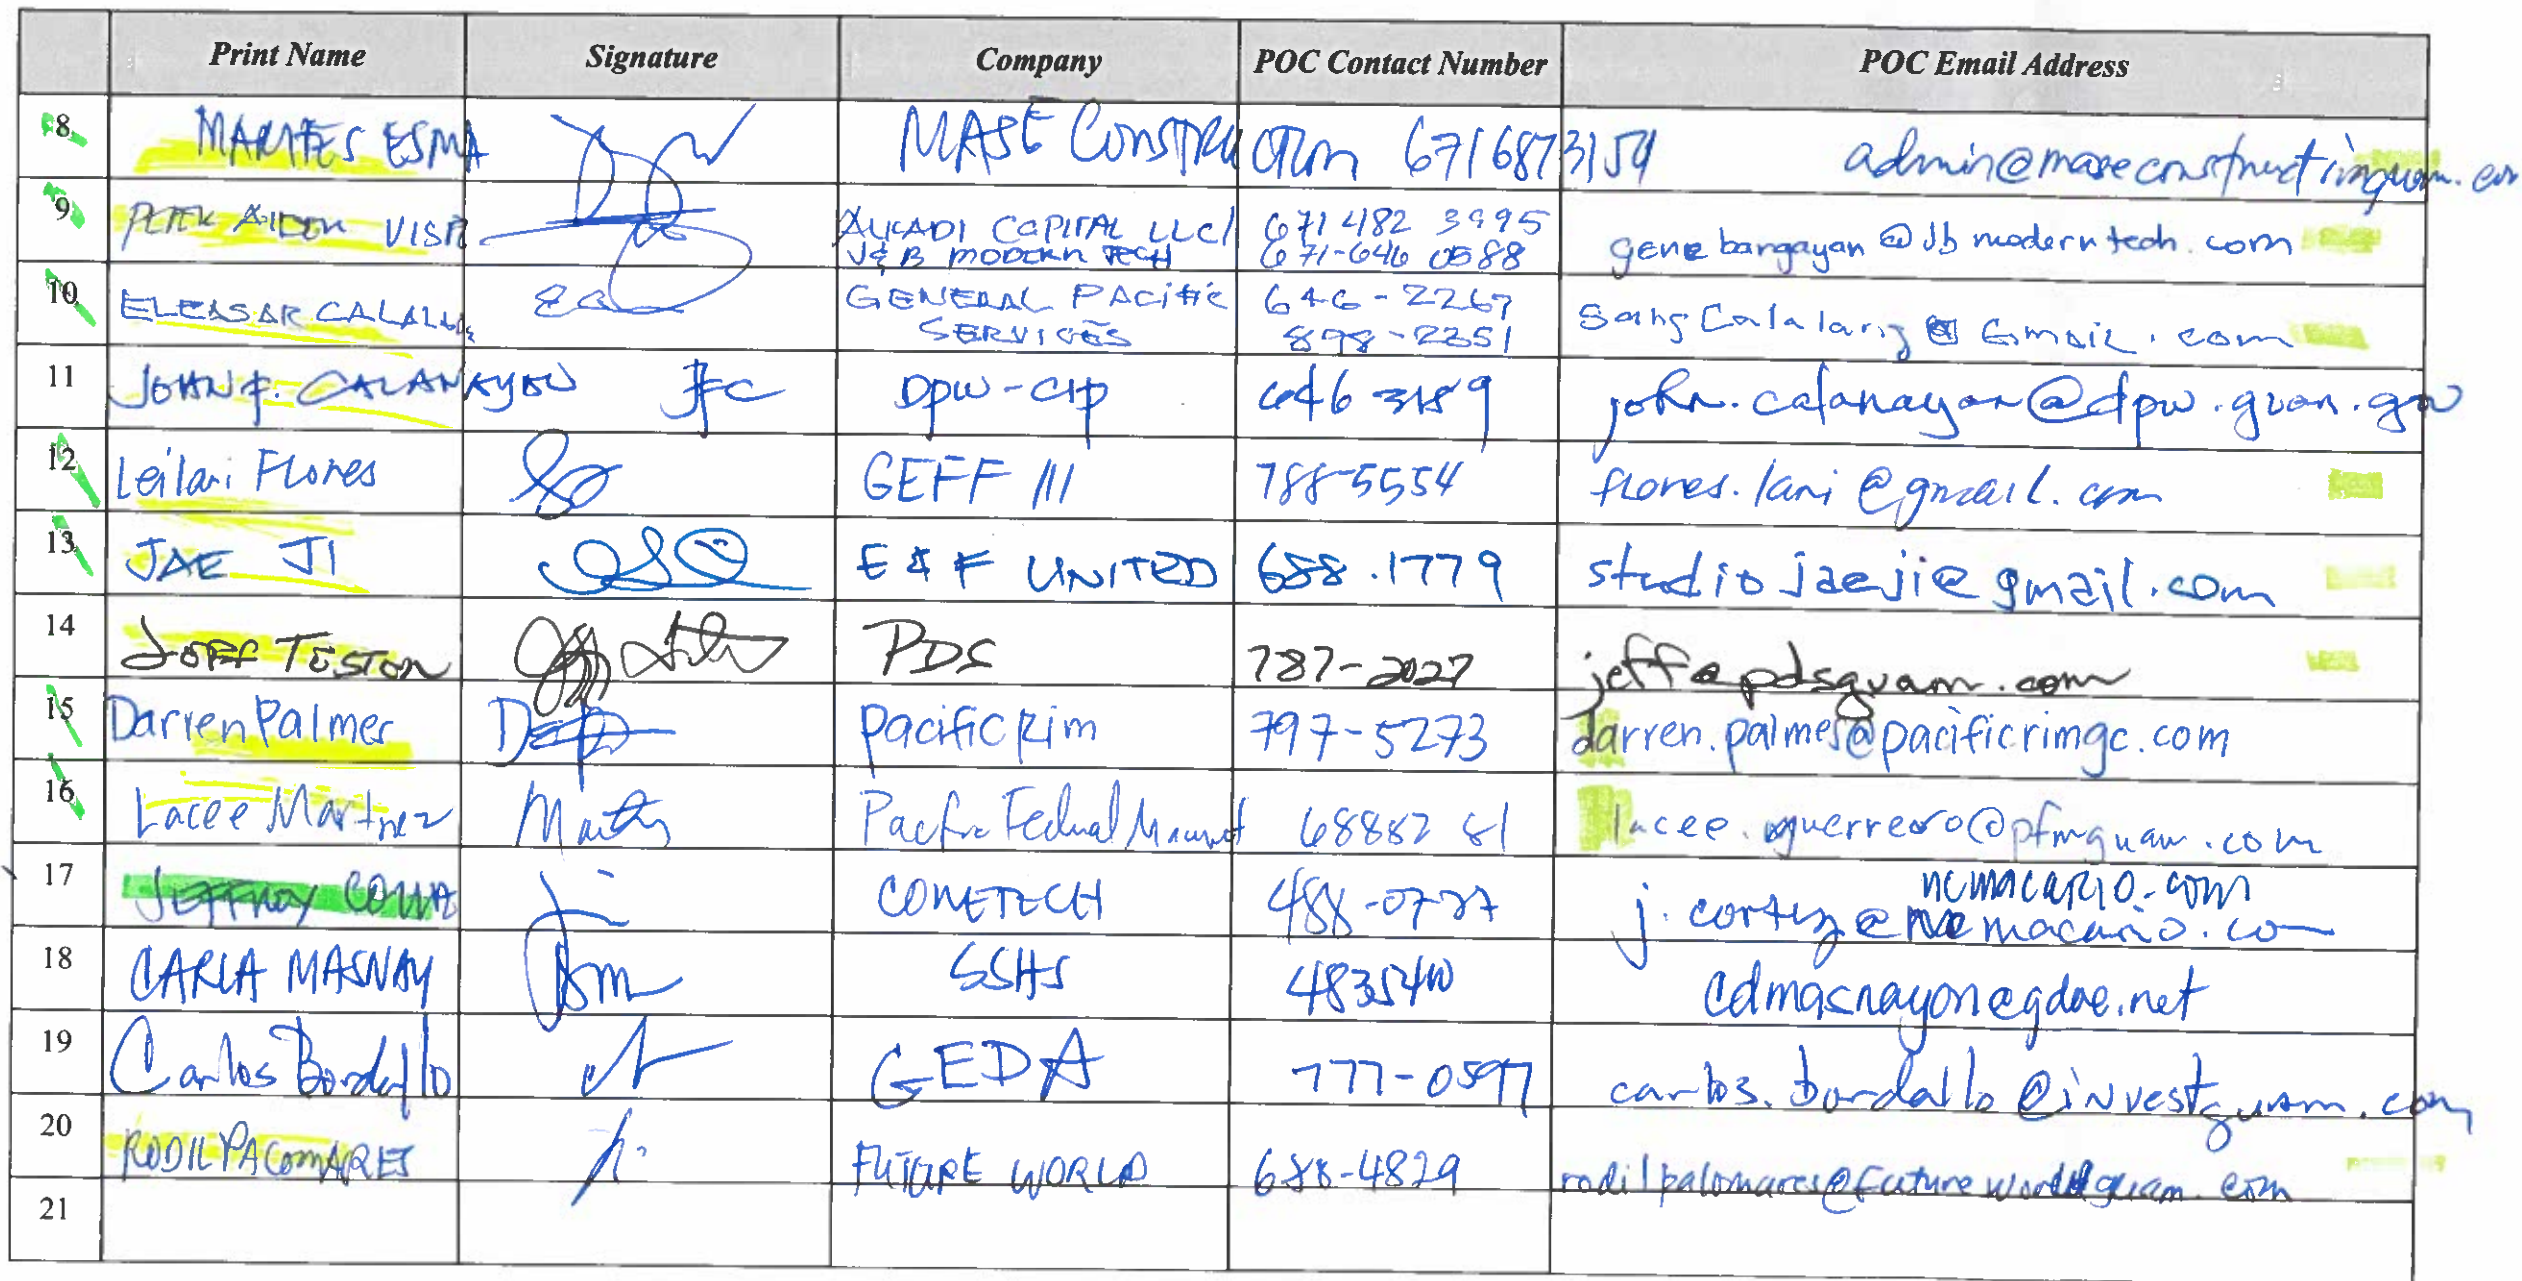 Print Name Signature Company POC Contact Number POC Email Address
8 MARITES ESMA MASE CONSTRUCTION 6716873154 admin@maseconstructionguam.com
9 PETER AIDEN VISP AUKADI CAPITAL LLC/ 671 482 3995
J&B MODERN TECH 671-646 0588 genebangayan@jbmoderntech.com
10 ELEASAR CALALANG GENERAL PACIFIC 646-2267
SERVICES 898-2351 sangcalalang@Gmail.com
11 JOHN F. CALANAYAN JFC DPW-CIP 646 3189 john.calanayan@dpw.guam.gov
12 Leilani Flores GEFF III 788-5554 flores.lani@gmail.com
13 JAE JI E & F UNITED 688.1779 studiojaeji@gmail.com
14 JEFF TESTON PDS 787-2027 jeff@pdsguam.com
15 Darren Palmer Pacific Rim 797-5273 darren.palmer@pacificrimgc.com
16 Lacee Martinez Pacific Federal 68882 81 lacee.guerrero@pfmguam.com
17 JEFFREY CONETECH 488-0727 j.cortez@ncmacario.com
ncmacario.com
18 CARLA MASNAY SSHS 4835410 cdmasnayon@gdoe.net
19 Carlos Bordallo GEDA 777-0597 carlos.bordallo@investguam.com
20 RODIL PALOMARES FUTURE WORLD 688-4829 rodilpalomares@futureworldguam.com
21